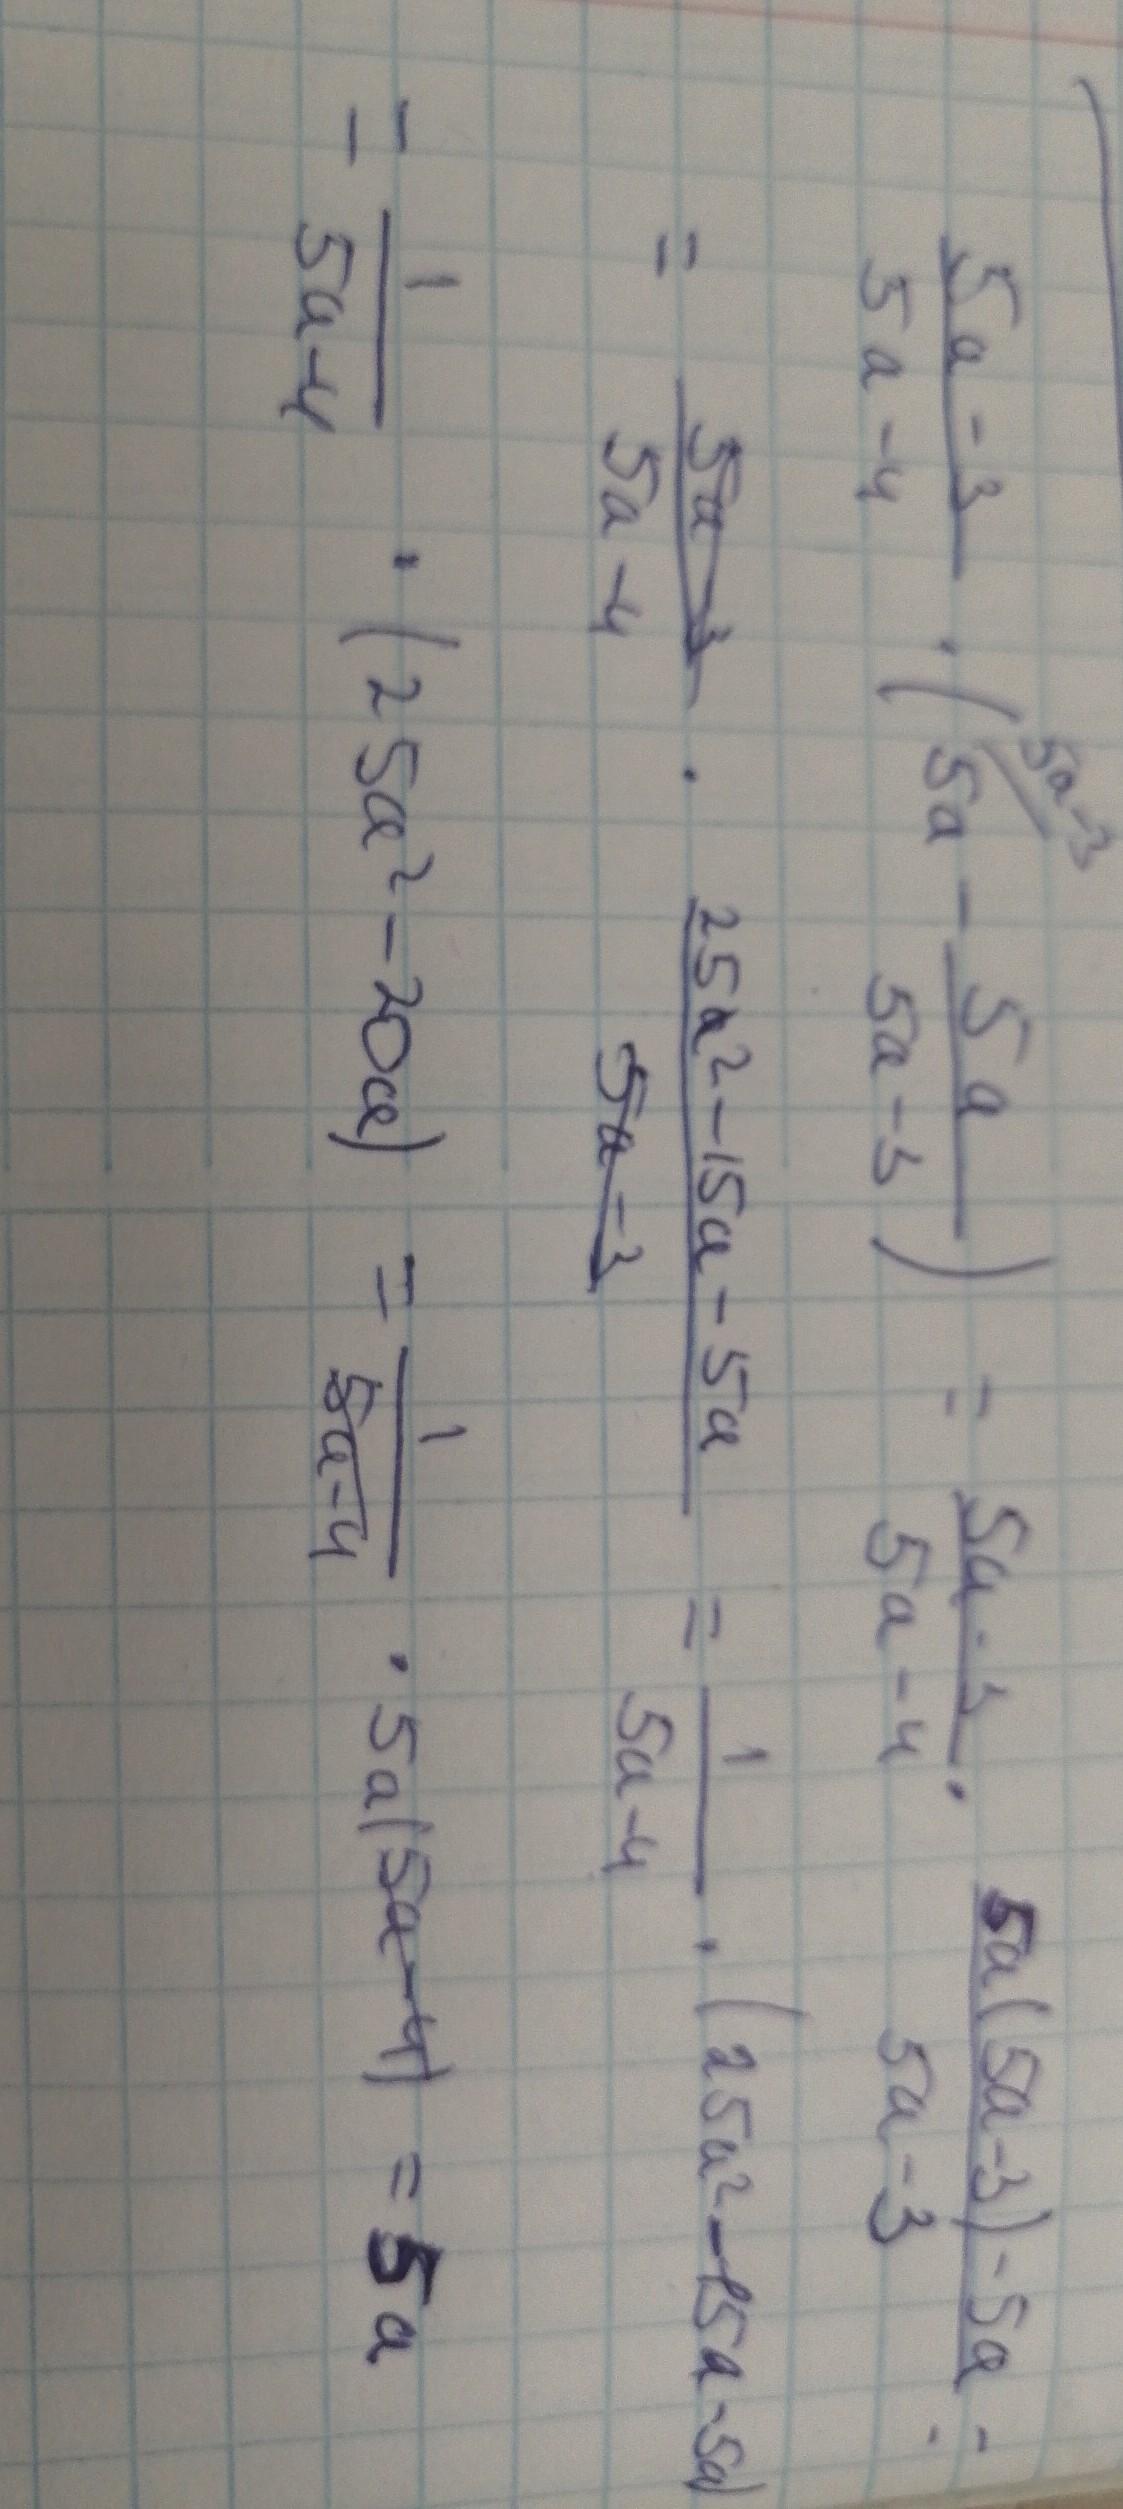 (5a-3)/(5a-4) · (5a^(5a-3) - 5a/(5a-3)) = (5a-3)/(5a-4) · (5a(5a-3)-5a)/(5a-3) =
= (5a-3)/(5a-4) · (25a²-15a-5a)/(5a-3) = 1/(5a-4) · (25a²-15a-5a)
= 1/(5a-4) · (25a²-20a) = 1/(5a-4) · 5a(5a-4) = 5a